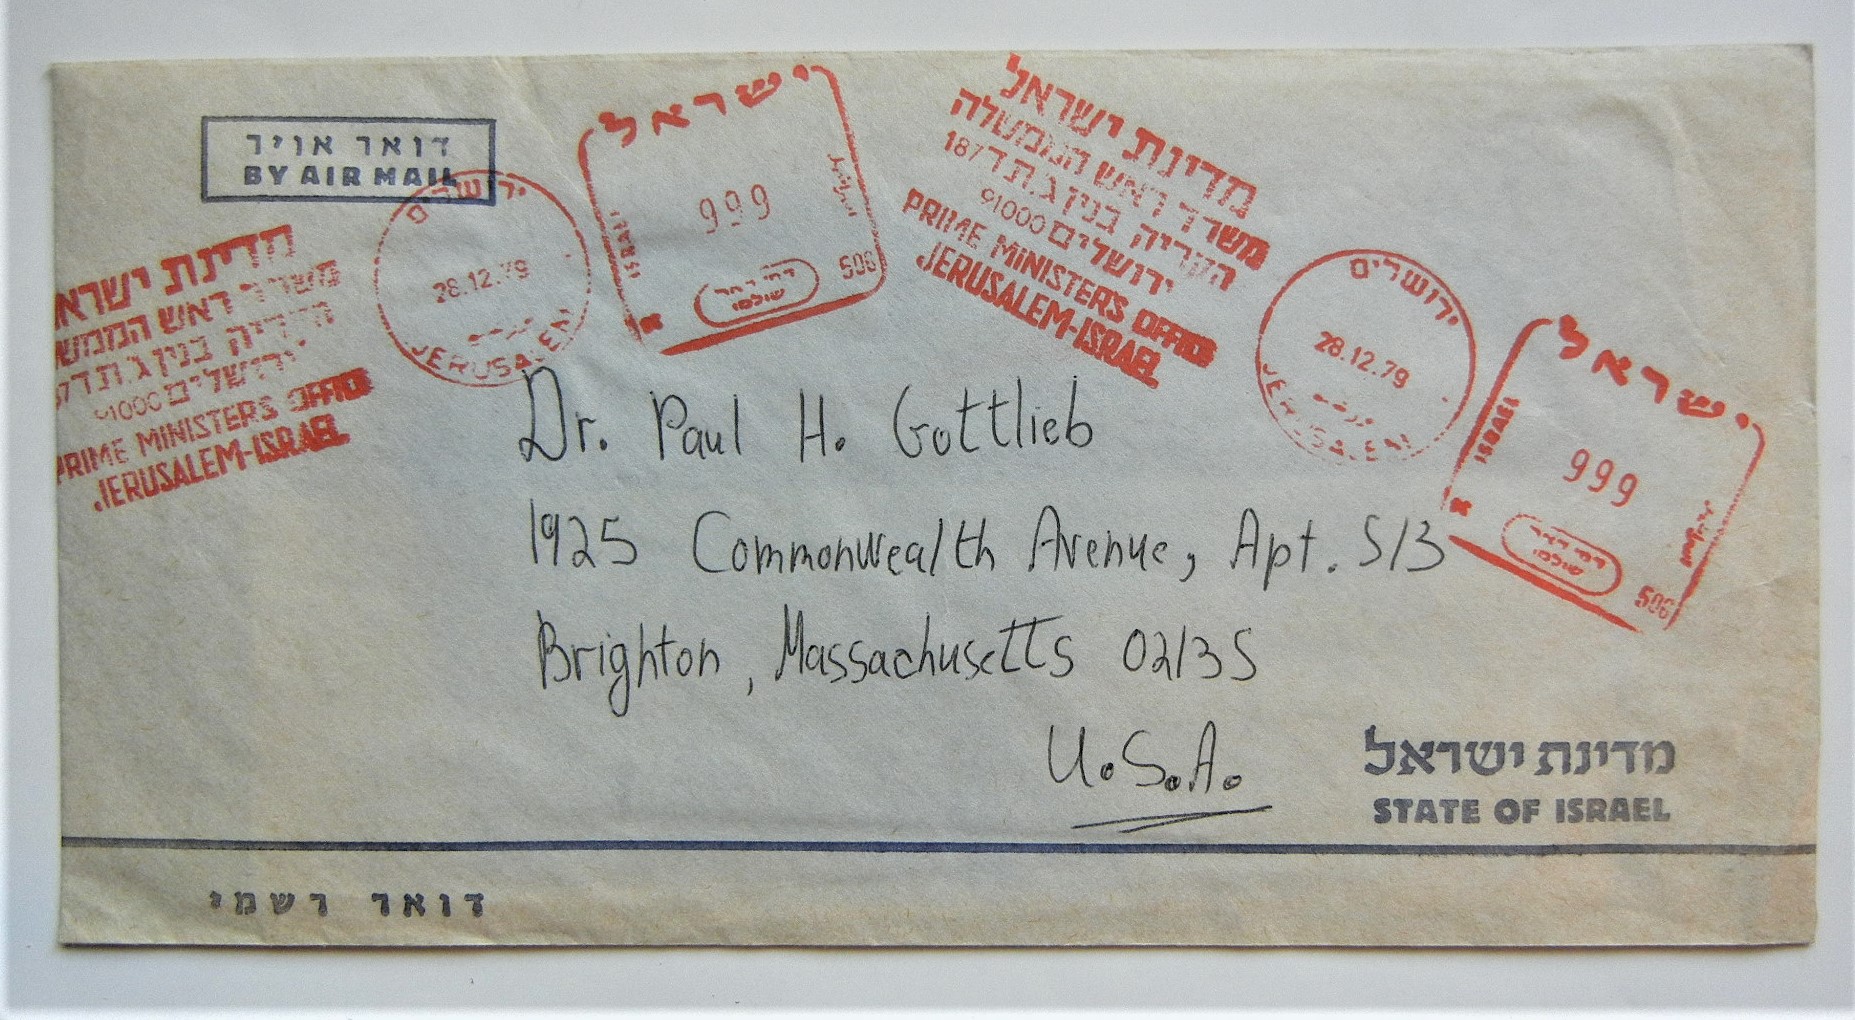 דואר אויר
BY AIR MAIL
מדינת ישרא
משרד ראש הממש
הקריה בנין ג.ת.ד 87
ירושלים 91000
PRIME MINISTERS OFFICE
JERUSALEM-ISRAEL
ירושלים
28.12.79
JERUSALEM
ישראל
ISRAEL
999
דמי דאר
שולמו
506
מדינת ישראל
משרד ראש הממשלה
הקריה בנין ג.ת.ד 187
ירושלים 91000
PRIME MINISTERS OFFICE
JERUSALEM-ISRAEL
ירושלים
28.12.79
JERUSALEM
ישראל
ISRAEL
999
דמי דאר
שולמו
506
Dr. Paul H. Gottlieb
1925 Commonwealth Avenue, Apt. 513
Brighton, Massachusetts 02135
U.S.A.
מדינת ישראל
STATE OF ISRAEL
דואר רשמי